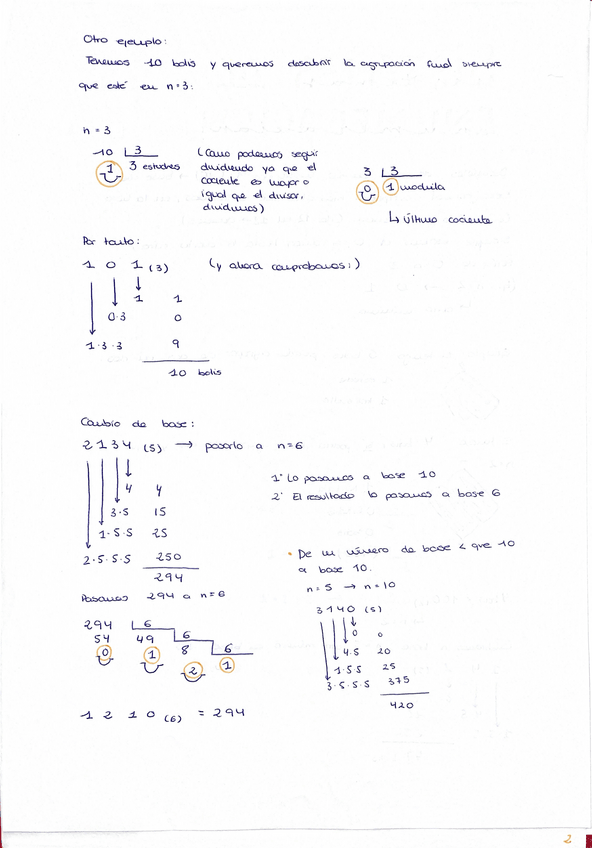 Otro ejemplo:
Tenemos 10 bolis y queremos descubrir la agrupación final siempre
que esté en n=3:
n = 3
10 3
1 3 estuches
(Como podemos seguir
dividiendo ya que el
cociente es mayor o
igual que el divisor,
dividimos)
3 3
0 1 mochila
↳ último cociente
Por tanto:
1 0 1 (3) (y ahora comprobamos:)
1 1
0·3 0
1·3·3 9
10 bolis
Cambio de base:
2134 (5) → pasarlo a n=6
1º Lo pasamos a base 10
2º El resultado lo pasamos a base 6
4 4
3·5 15
1·5·5 25
2·5·5·5 250
294
Pasamos 294 a n=6
294 6
54 49 6
0 1 8 6
2 1
1 2 1 0 (6) = 294
• De un número de base < que 10
a base 10.
n=5 → n=10
3140 (5)
0 0
4·5 20
1·5·5 25
3·5·5·5 375
420
2